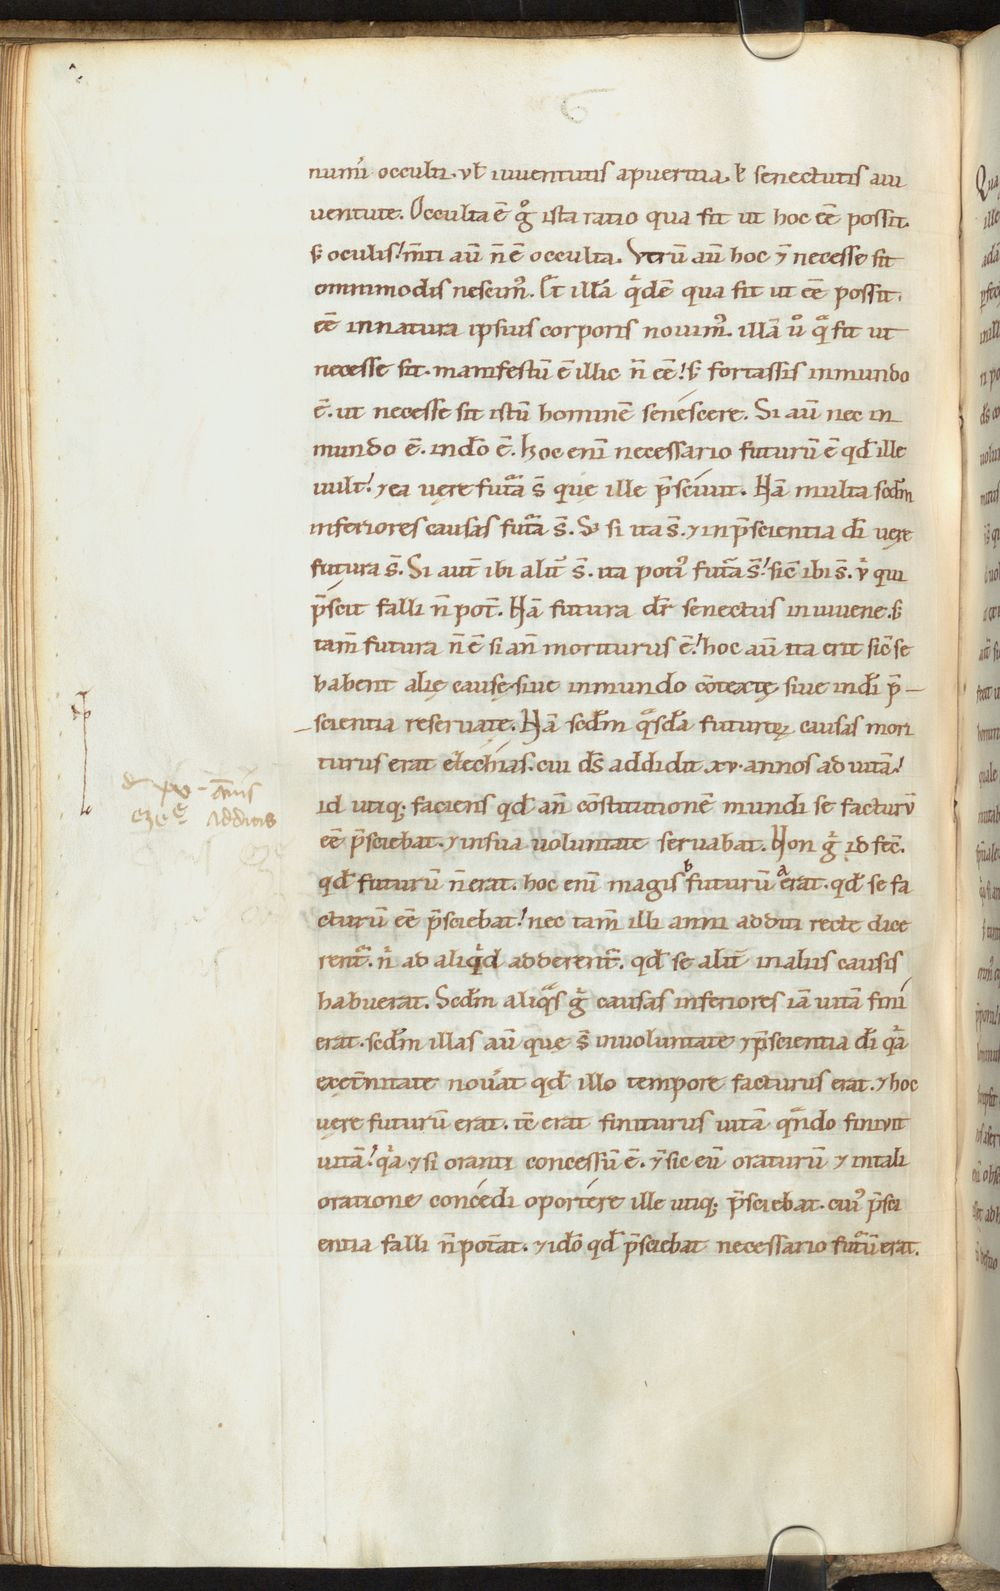 numeri occulti. vƚ iuventutis a pueritia. ƚ senectutis a iu
ventute. Occulta ē gͦ ista ratio qua fit ut hoc eē possit.
s; oculis! m̄ti aū n̄ ē occulta. Vtrū aū hoc ⁊ necesse sit
omnimodis nescimꝰ. Et illā qͥdē qua fit ut eē possit.
eē in natura ipsius corporis novimꝰ. illā uͦ qᵃ fit ut
necesse sit. manifestū ē illic n̄ eē! s; fortassis in mundo
ē. ut necesse sit istū hominē senescere. Si aū nec in
mundo ē. in dō ē. Hoc enī necessario futurū ē qđ ille
uult! ⁊ ea uere futᵃa s̄ que ille p̄scivit. Nā multa scđm
inferiores causas futᵃa s̄. S; si ita s̄. ⁊ in p̄scientia dī uere
futura s̄. Si aut̄ ibi alit̄ s̄. ita potiꝰ futᵃa s̄! sic̄ ibi s̄. uͥ qui
p̄scit falli n̄ pot̄. Nā futura dr̄ senectus in iuvene. s;
tam̄ futura n̄ ē si an̄ moriturus ē! hoc aū ita erit sic̄ se
habent alię cause. sive in mundo cōtextę sive in dī p̄
scientia reservate. Nā scđm qᵃsdā futuroꝝ causas mori
turus erat ezechias. cui ds̄ addidit xv. annos ad vitā!
id utiq; faciens qđ an̄ cōstitutionē mundi se facturū
eē p̄sciebat. ⁊ in sua voluntate servabat. Non gͦ id fec̄.
qđ futurū n̄ erat. hoc enī magis ᵇ futurū ᵃ erat. qđ se fa
cturū eē p̄sciebat! nec tam̄ illi anni additi recte dice
rent̄. nͥ ad aliqͥd adderent̄. qđ se alit̄ in aliis causis
habuerat. Scđm aliqᵃs gͦ causas inferiores iā vitā fini
erat. scđm illas aū que s̄ in voluntate ⁊ p̄scientia dī qͥa
ex et̄nitate noverat qđ illo tempore facturus erat. ⁊ hoc
uere futurū erat. tē erat finiturus vitā qᵃndo finivit
vitā! qͥa ⁊ si oranti concessū ē. ⁊ sic eū oraturū ⁊ in tali
oratione concedi oportere ille utiq; p̄sciebat. cuiꝰ p̄sci
entia falli n̄ poterat. ⁊ idō qđ p̄sciebat necessario futurū erat.
de xv annis
ezec̄ additis